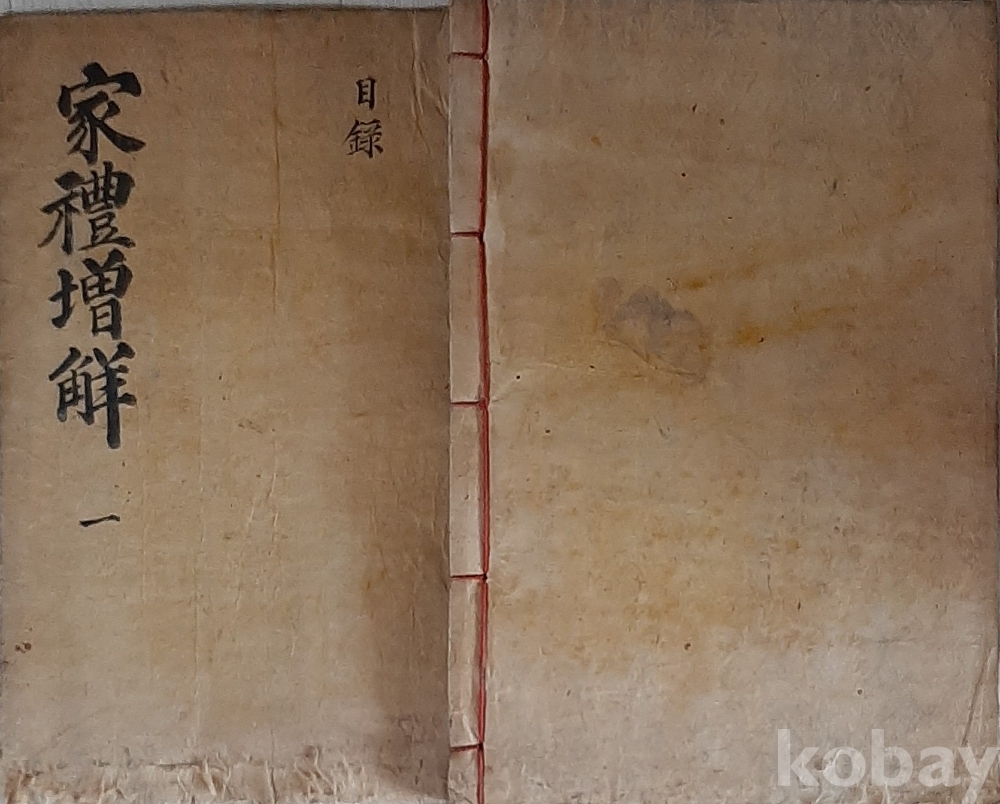 目錄
家禮增觧
一
kobay